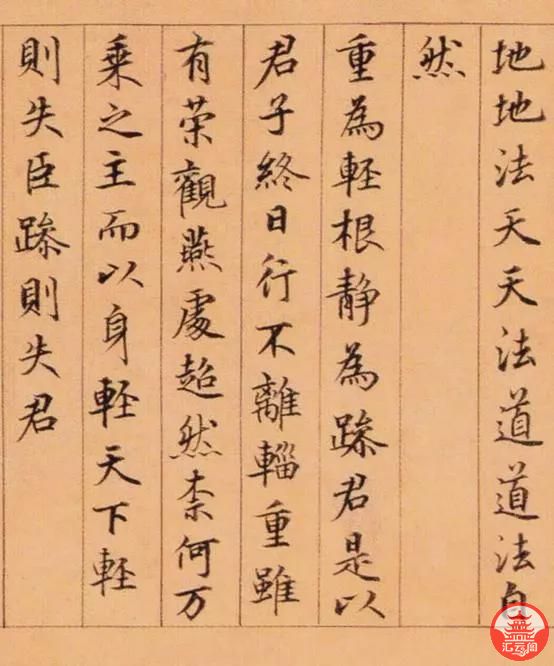 地地法天天法道道法自
然
重為輕根静為躁君是以
君子終日行不離輜重雖
有荣觀燕處超然柰何万
乗之主而以身輕天下輕
則失臣躁則失君
汇云阁